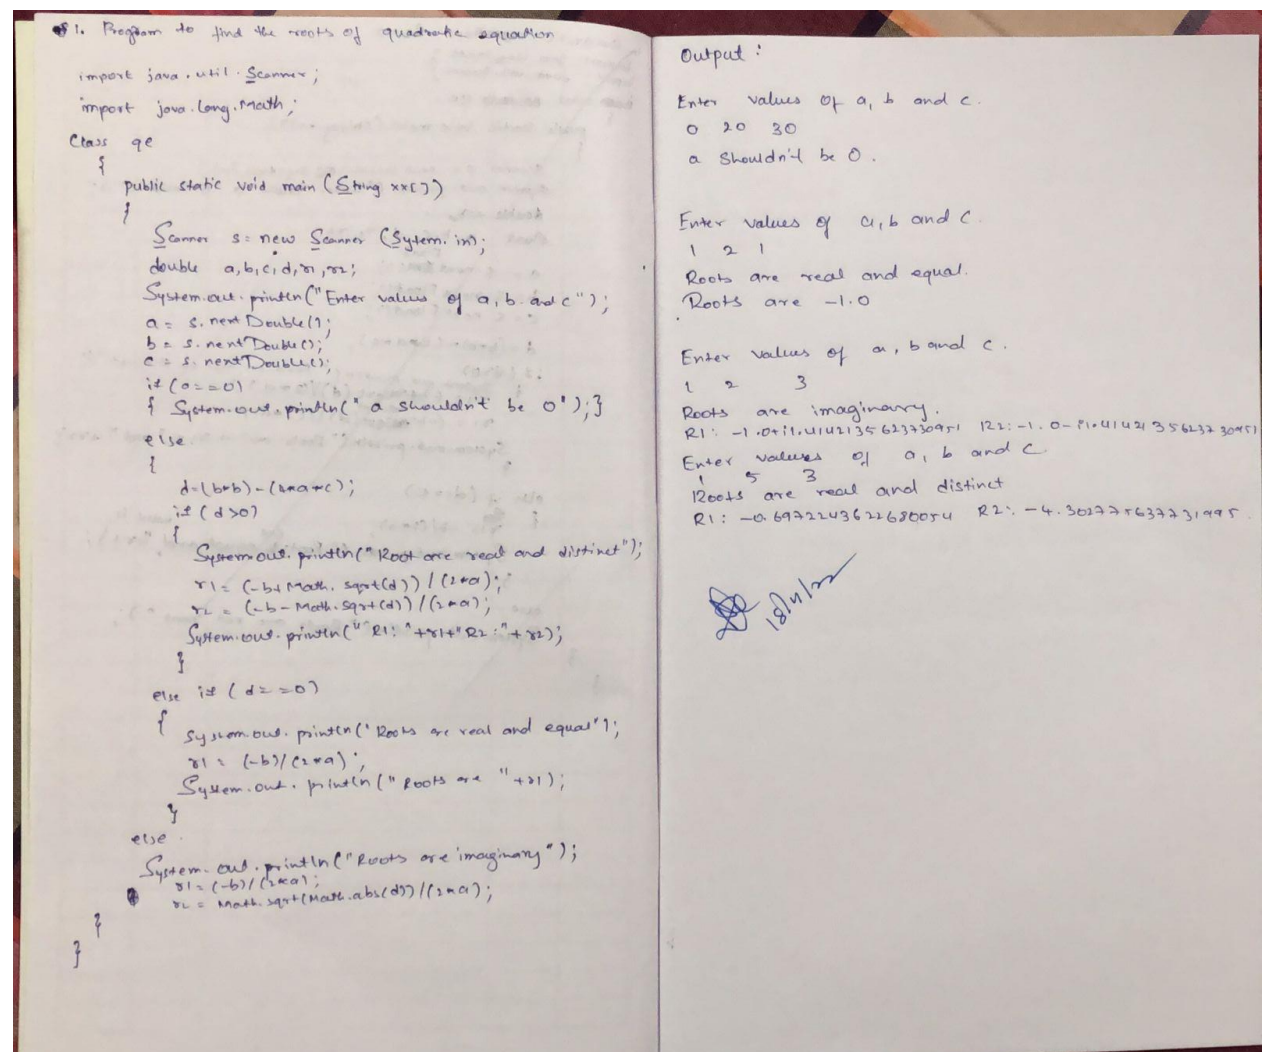 1. Program to find the roots of quadratic equation
import java.util.Scanner;
import java.lang.Math;
Class qe
{
public static void main (String xx[])
{
Scanner s = new Scanner (Sytem.in);
double a,b,c,d,r1,r2;
System.out.println("Enter values of a, b and c");
a = s.nextDouble();
b = s.nextDouble();
c = s.nextDouble();
if (a==0)
{ System.out.println(" a shouldn't be 0"); }
else
{
d=(b*b)-(4*a*c);
if (d>0)
{
System.out.println("Root are real and distinct");
r1 = (-b+Math.sqrt(d))/(2*a);
r2 = (-b-Math.sqrt(d))/(2*a);
System.out.println("R1: "+r1+"R2:"+r2);
}
else if (d==0)
{
System.out.println("Roots are real and equal");
r1 = (-b)/(2*a);
System.out.println("Roots are "+r1);
}
else
System.out.println("Roots are imaginary");
r1=(-b)/(2*a);
r2 = Math.sqrt(Math.abs(d))/(2*a);
}
}
Output :
Enter values of a, b and c.
0 20 30
a shouldn't be 0.
Enter values of a, b and c.
1 2 1
Roots are real and equal.
Roots are -1.0
Enter values of a, b and c.
1 2 3
Roots are imaginary.
R1: -1.0+i1.4142135623730951 R2: -1.0-i1.4142135623730951
Enter values of a, b and c
1 5 3
Roots are real and distinct
R1: -0.6972243622680054 R2: -4.302775637731995.